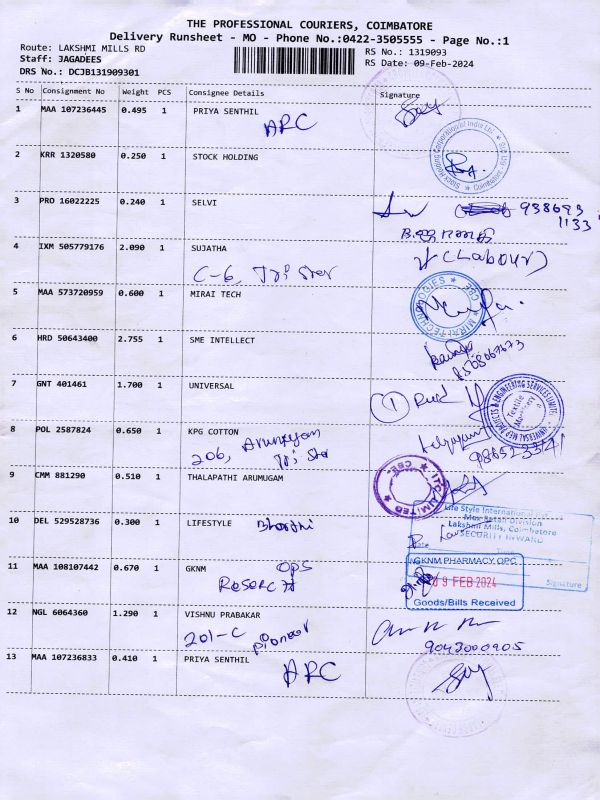 THE PROFESSIONAL COURIERS, COIMBATORE
Delivery Runsheet - MO - Phone No.:0422-3505555 - Page No.:1
Route: LAKSHMI MILLS RD
RS No.: 1319093
Staff: JAGADEES
RS Date: 09-Feb-2024
DRS No.: DCJB131909301
S No Consignment No Weight PCS Consignee Details Signature
1 MAA 107236445 0.495 1 PRIYA SENTHIL
ARC
2 KRR 1320580 0.250 1 STOCK HOLDING
Stock Holding Corporation of India Ltd. Coimbatore
3 PRO 16022225 0.240 1 SELVI
938693
1133
4 IXM 505779176 2.090 1 SUJATHA
(Labour)
C-6, Tri Star
5 MAA 573720959 0.600 1 MIRAI TECH
MIRAI TECHNOLOGIES CBE
6 HRD 50643400 2.755 1 SME INTELLECT
7 GNT 401461 1.700 1 UNIVERSAL
1
UNIVERSAL MEP PROJECTS & ENGINEERING SERVICES
8 POL 2587824 0.650 1 KPG COTTON
206, Tri Star
9 CMM 881290 0.510 1 THALAPATHI ARUMUGAM
ITC LIMITED CBE
10 DEL 529528736 0.300 1 LIFESTYLE Bharathi
Life Style International
Max Retail Division
Lakshmi Mills, Coimbatore
SECURITY INWARD
Time
Date
Signature
11 MAA 108107442 0.670 1 GKNM OPS
GKNM PHARMACY OPC
9 FEB 2024
Goods/Bills Received
12 NGL 6064360 1.290 1 VISHNU PRABAKAR
201-C Pioneer
9042000905
13 MAA 107236833 0.410 1 PRIYA SENTHIL
ARC